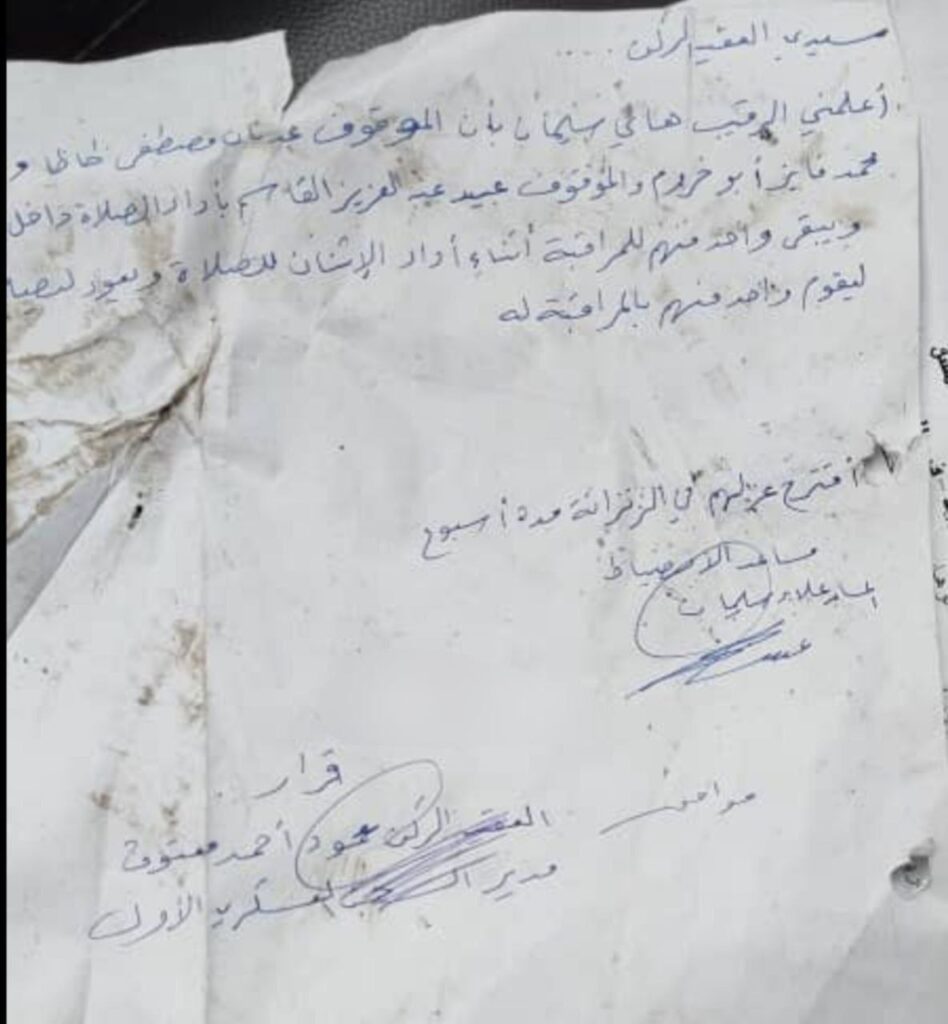 سيدي العقيد الركن .....
أعلمني الرقيب هاني سليمان بأن الموقوف عدنان مصطفى و
محمد فايز أبو خروم والموقوف عبيد عبد العزيز القاسم بأداء الصلاة داخل
ويبقى واحد منهم للمراقبة أثناء أداء الإثنان للصلاة ويعود
ليقوم واحد منهم بالمراقبة له
أقترح عزلهم في الزنزانة مدة أسبوع
مساعد الانضباط
المساعد علاء سليمان
قرار
موافق
العقيد الركن محمود أحمد معتوق
مدير السجن العسكري الأول